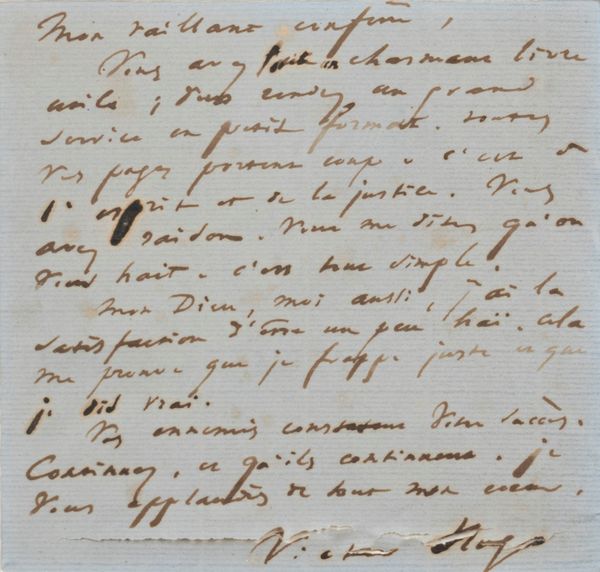 Mon vaillant confrère,
Vous avez fait un charmant livre
utile ; vous rendez un grand
service en petit format. Toutes
vos pages portent coup. C'est de
l'esprit et de la justice. Vous
avez raison. Vous me dites qu'on
vous hait. C'est tout simple.
Mon Dieu, moi aussi, j'ai la
satisfaction d'être un peu haï. Cela
me prouve que je frappe juste et que
je dis vrai.
Vos ennemis constatent votre succès.
Continuez, et qu'ils continuent. Je
vous applaudis de tout mon cœur.
Victor Hugo